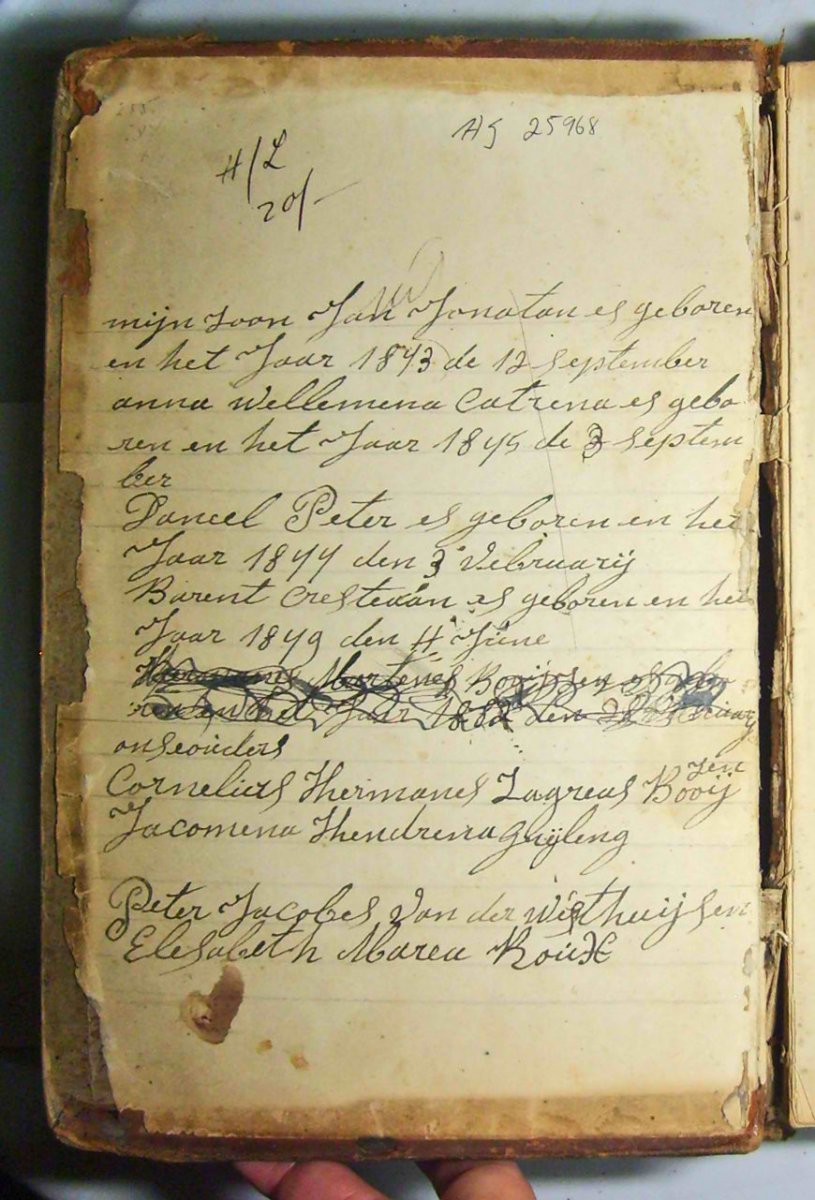 HG 25968
H/L
20/-
mijn zoon Jan Jonatan es geboren
en het Jaar 1843 de 12 september
anna wellemena Catrena es gebo
ren en het Jaar 1845 de 3 septem
ber
Daneel Peter es geboren en het
Jaar 1844 den 3 Vebruarij
Barent Crestejan es geboren en het
Jaar 1849 den 4 June
Hermanes Martenes Booijsen es gebo
ren en het Jaar 1882 den
onseouders
Cornelius Hermanes Zagreas Booij
zen
Jacomena Hendrena
Peter Jacobes Van der Westhuijsen
Elesabeth Marea Roux